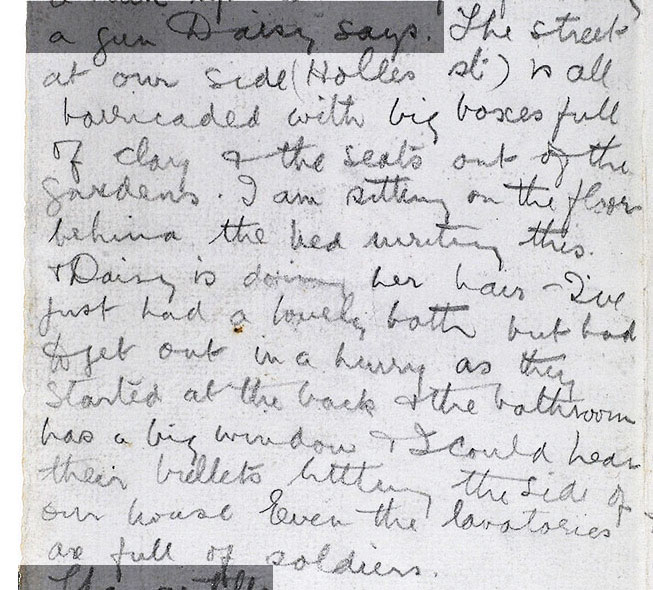 a gun Daisy says. The street
at our side (Holles st) is all
barricaded with big boxes full
of clay & the seats out of the
gardens. I am sitting on the floor
behind the bed writing this
& Daisy is doing her hair - I've
just had a lovely bath but had
to get out in a hurry as they
started at the back & the bathroom
has a big window & I could hear
their bullets hitting the side of
our house Even the lavatories
are full of soldiers.
The